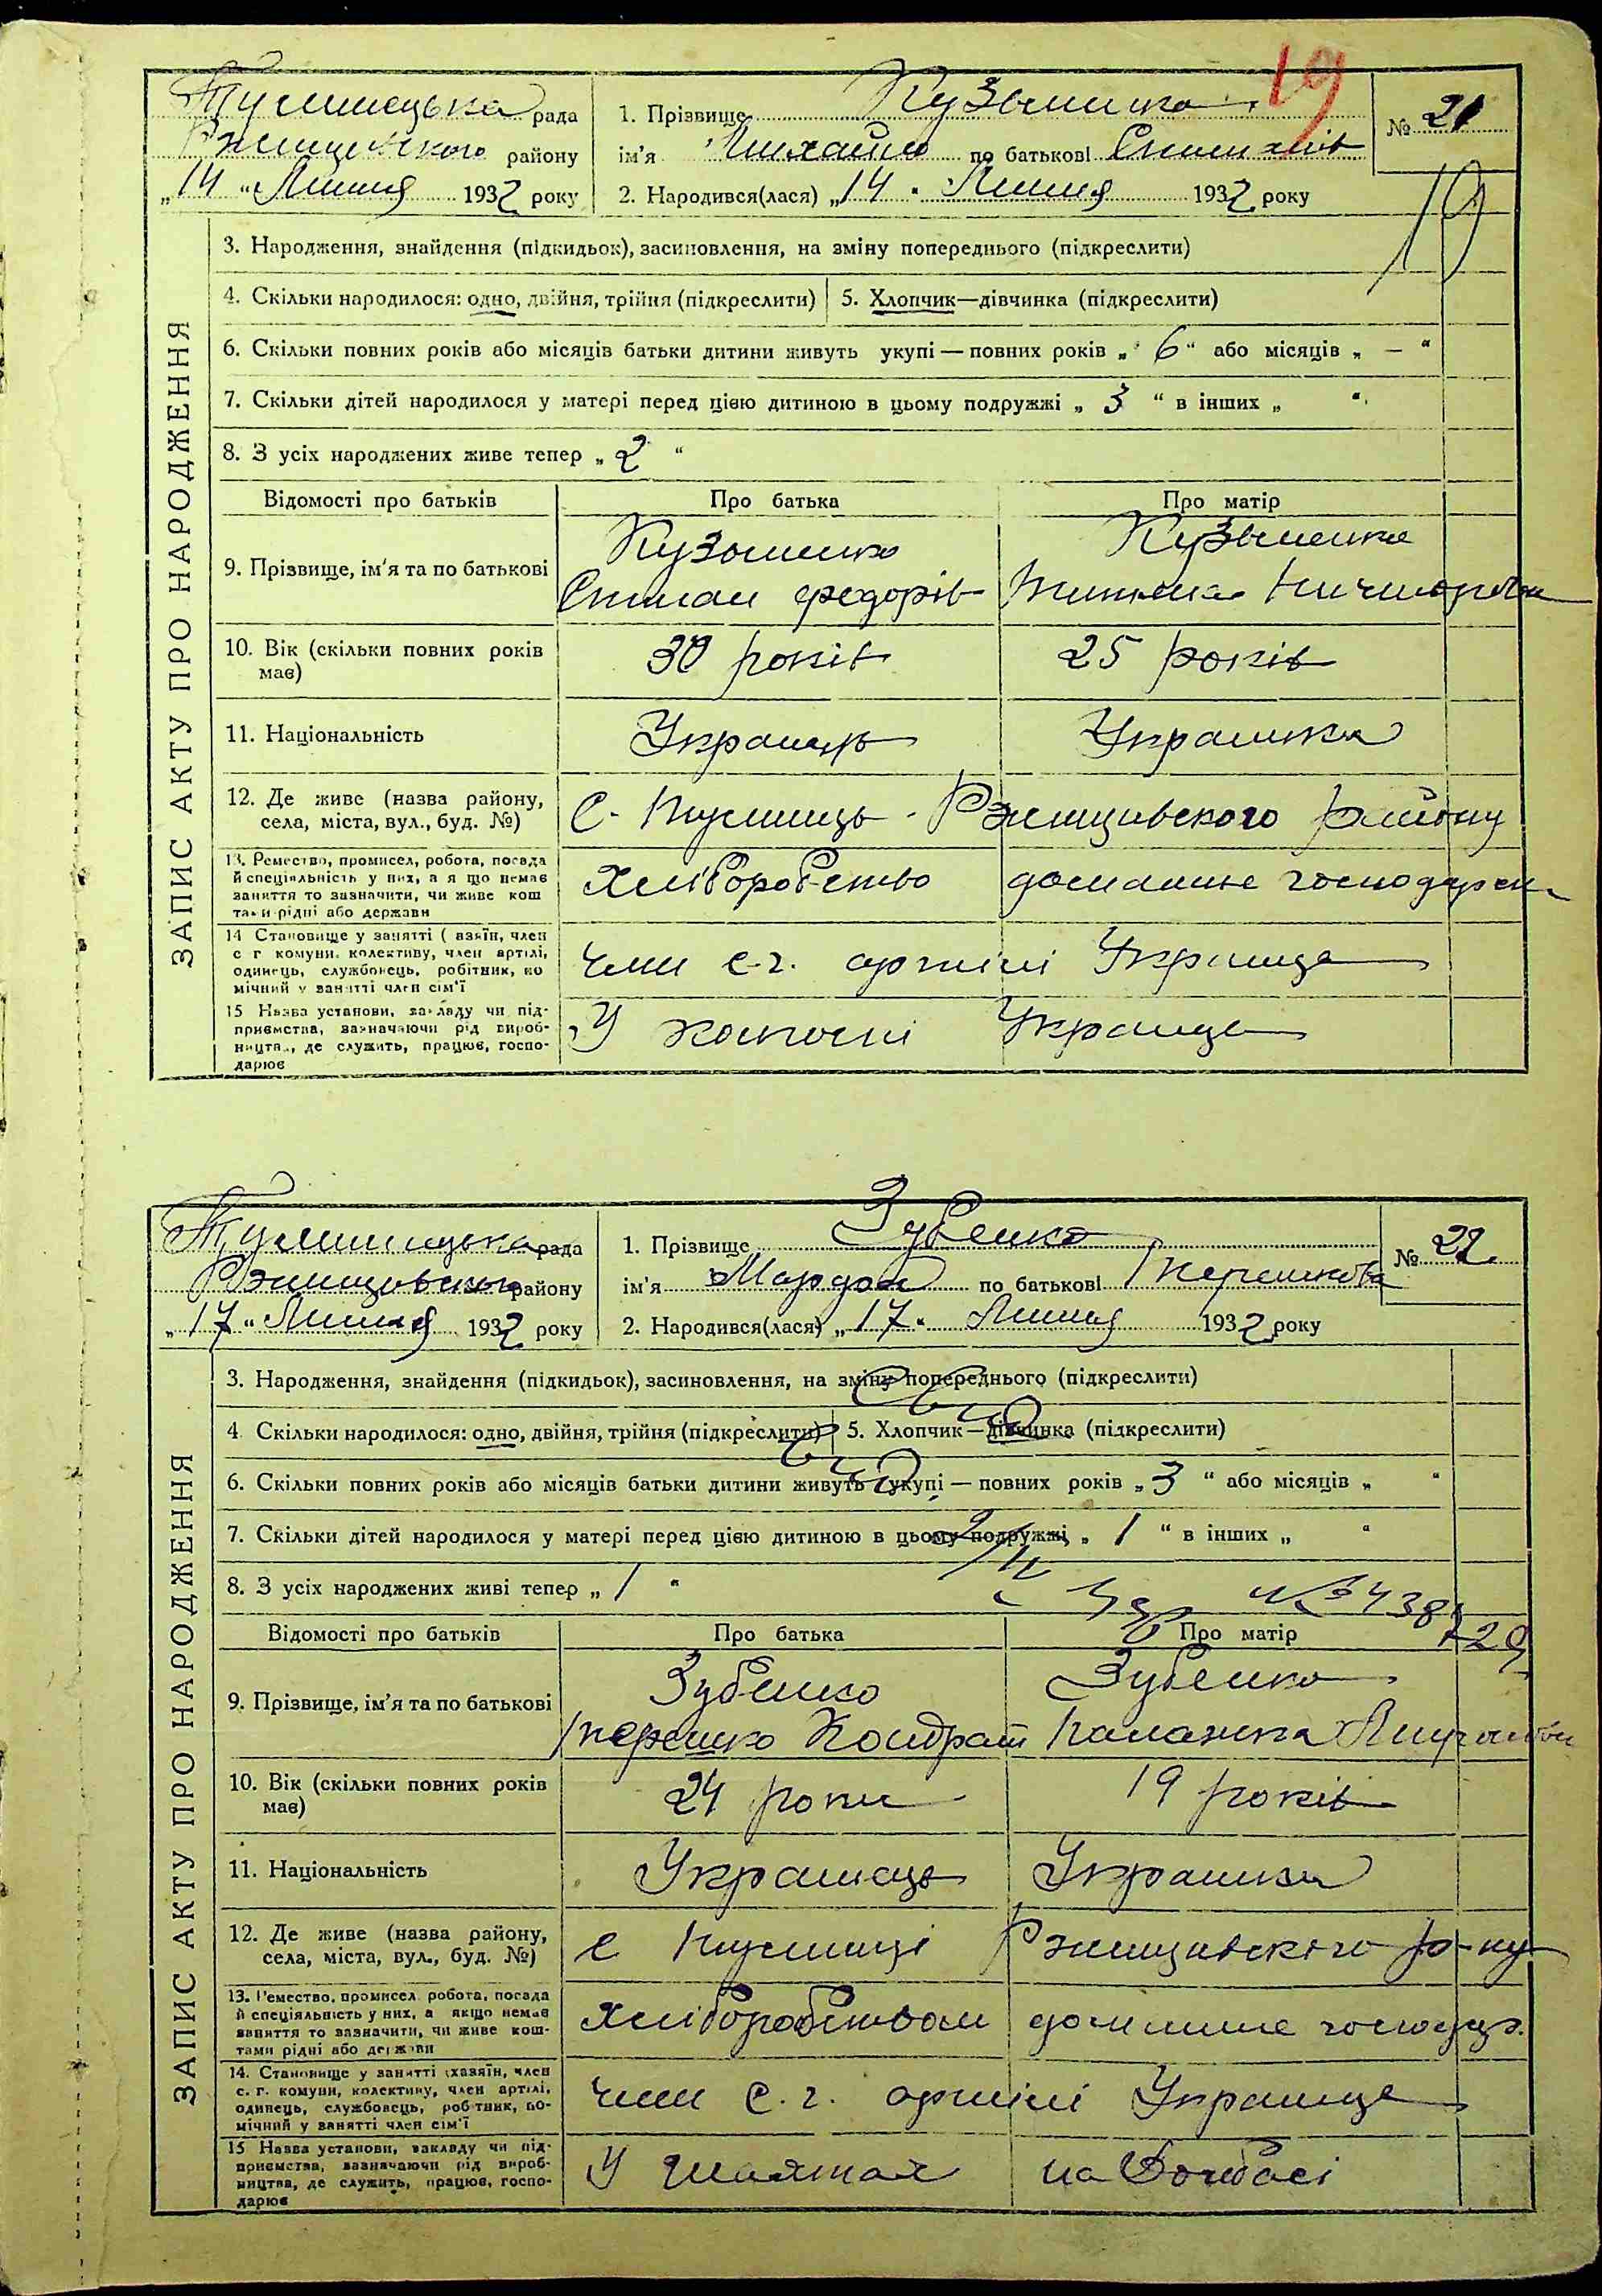 19
рада
району
„14“ Липня 1932 року
1. Прізвище Кузьменко
ім'я Михайло по батькові
2. Народився(лася) „14“ Липня 1932 року
№ 21
19
ЗАПИС АКТУ ПРО НАРОДЖЕННЯ
3. Народження, знайдення (підкидьок), засиновлення, на зміну попереднього (підкреслити)
4. Скільки народилося: одно, двійня, трійня (підкреслити)
5. Хлопчик—дівчинка (підкреслити)
6. Скільки повних років або місяців батьки дитини живуть укупі — повних років „ 6 “ або місяців „ — “
7. Скільки дітей народилося у матері перед цією дитиною в цьому подружжі „ 3 “ в інших „ “
8. З усіх народжених живе тепер „ 2 “
Відомості про батьків
Про батька
Про матір
9. Прізвище, ім'я та по батькові
Кузьменко
Степан Федорів
Кузьменко
10. Вік (скільки повних років
має)
30 років
25 років
11. Національність
Українець
Українка
12. Де живе (назва району,
села, міста, вул., буд. №)
С.
району
13. Ремество, промисел, робота, посада
й спеціяльність у них, а я що немає
заняття то зазначити, чи живе кош
тами рідні або держави
Хліборобство
домашнє господарст.
14 Становище у занятті ( взяїн, член
с г комуни, колективу, член артілі,
одинець, службовець, робітник, по
мічний у занятті член сім'ї
член с-г. артілі
15 Назва установи, закладу чи під-
приємства, зазначаючи рід вироб-
ництва, де служить, працює, госпо-
дарює
У
рада
району
„17“ Липня 1932 року
1. Прізвище Зубенко
ім'я по батькові
2. Народився(лася) „17“ Липня 1932 року
№ 22.
ЗАПИС АКТУ ПРО НАРОДЖЕННЯ
3. Народження, знайдення (підкидьок), засиновлення, на зміну попереднього (підкреслити)
4. Скільки народилося: одно, двійня, трійня (підкреслити)
5. Хлопчик—дівчинка (підкреслити)
6. Скільки повних років або місяців батьки дитини живуть укупі — повних років „ 3 “ або місяців „ “
7. Скільки дітей народилося у матері перед цією дитиною в цьому подружжі „ 1 “ в інших „ “
8. З усіх народжених живі тепер „ 1 “
Відомості про батьків
Про батька
Про матір
9. Прізвище, ім'я та по батькові
Зубенко
Терешко Кондрат
Зубенко
Палажка
10. Вік (скільки повних років
має)
24 роки
19 років
11. Національність
Українець
Українка
12. Де живе (назва району,
села, міста, вул., буд. №)
с
13. Ремество, промисел робота, посада
й спеціяльність у них, а якщо немає
заняття то зазначити, чи живе кош-
тами рідні або держави
Хліборобством
домашнє господар.
14. Становище у занятті (хазяїн, член
с. г. комуни, колективу, член артілі,
одинець, службовець, робітник, по-
мічний у занятті член сім'ї
член с. г. артілі
15 Назва установи, закладу чи під-
приємства, зазначаючи рід вироб-
ництва, де служить, працює, госпо-
дарює
У шахтах на Донбасі